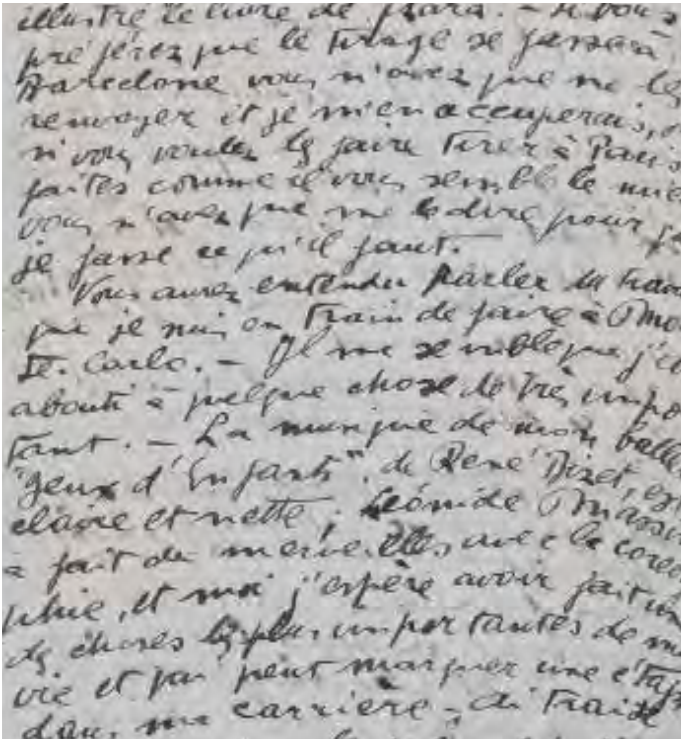 illustre le livre de                 . — Si vous
préférez que le tirage se fassera à
Barcelone vous n'avez que me les
renvoyer et je m'en accuperais,
si vous voulez les faire tirer à Paris
faites comme il vous semble le mie
vous n'avez que me le dire pour
je fasse ce qu'il faut.
Vous aurez entendu parler du trav
que je suis en train de faire à Mo
te. Carlo. — Il me semble que j'ai
abouti à quelque chose de très impo
tant. — La musique de mon balle
"Jeux d'Enfants", de René Bizet, es
claire et nette; Léonide Massi
a fait des merveilles avec la coreo
phie, et moi j'espère avoir fait un
des choses les plus importantes de ma
vie et qui peut marquer une étap
dans ma carrière. J'ai traité